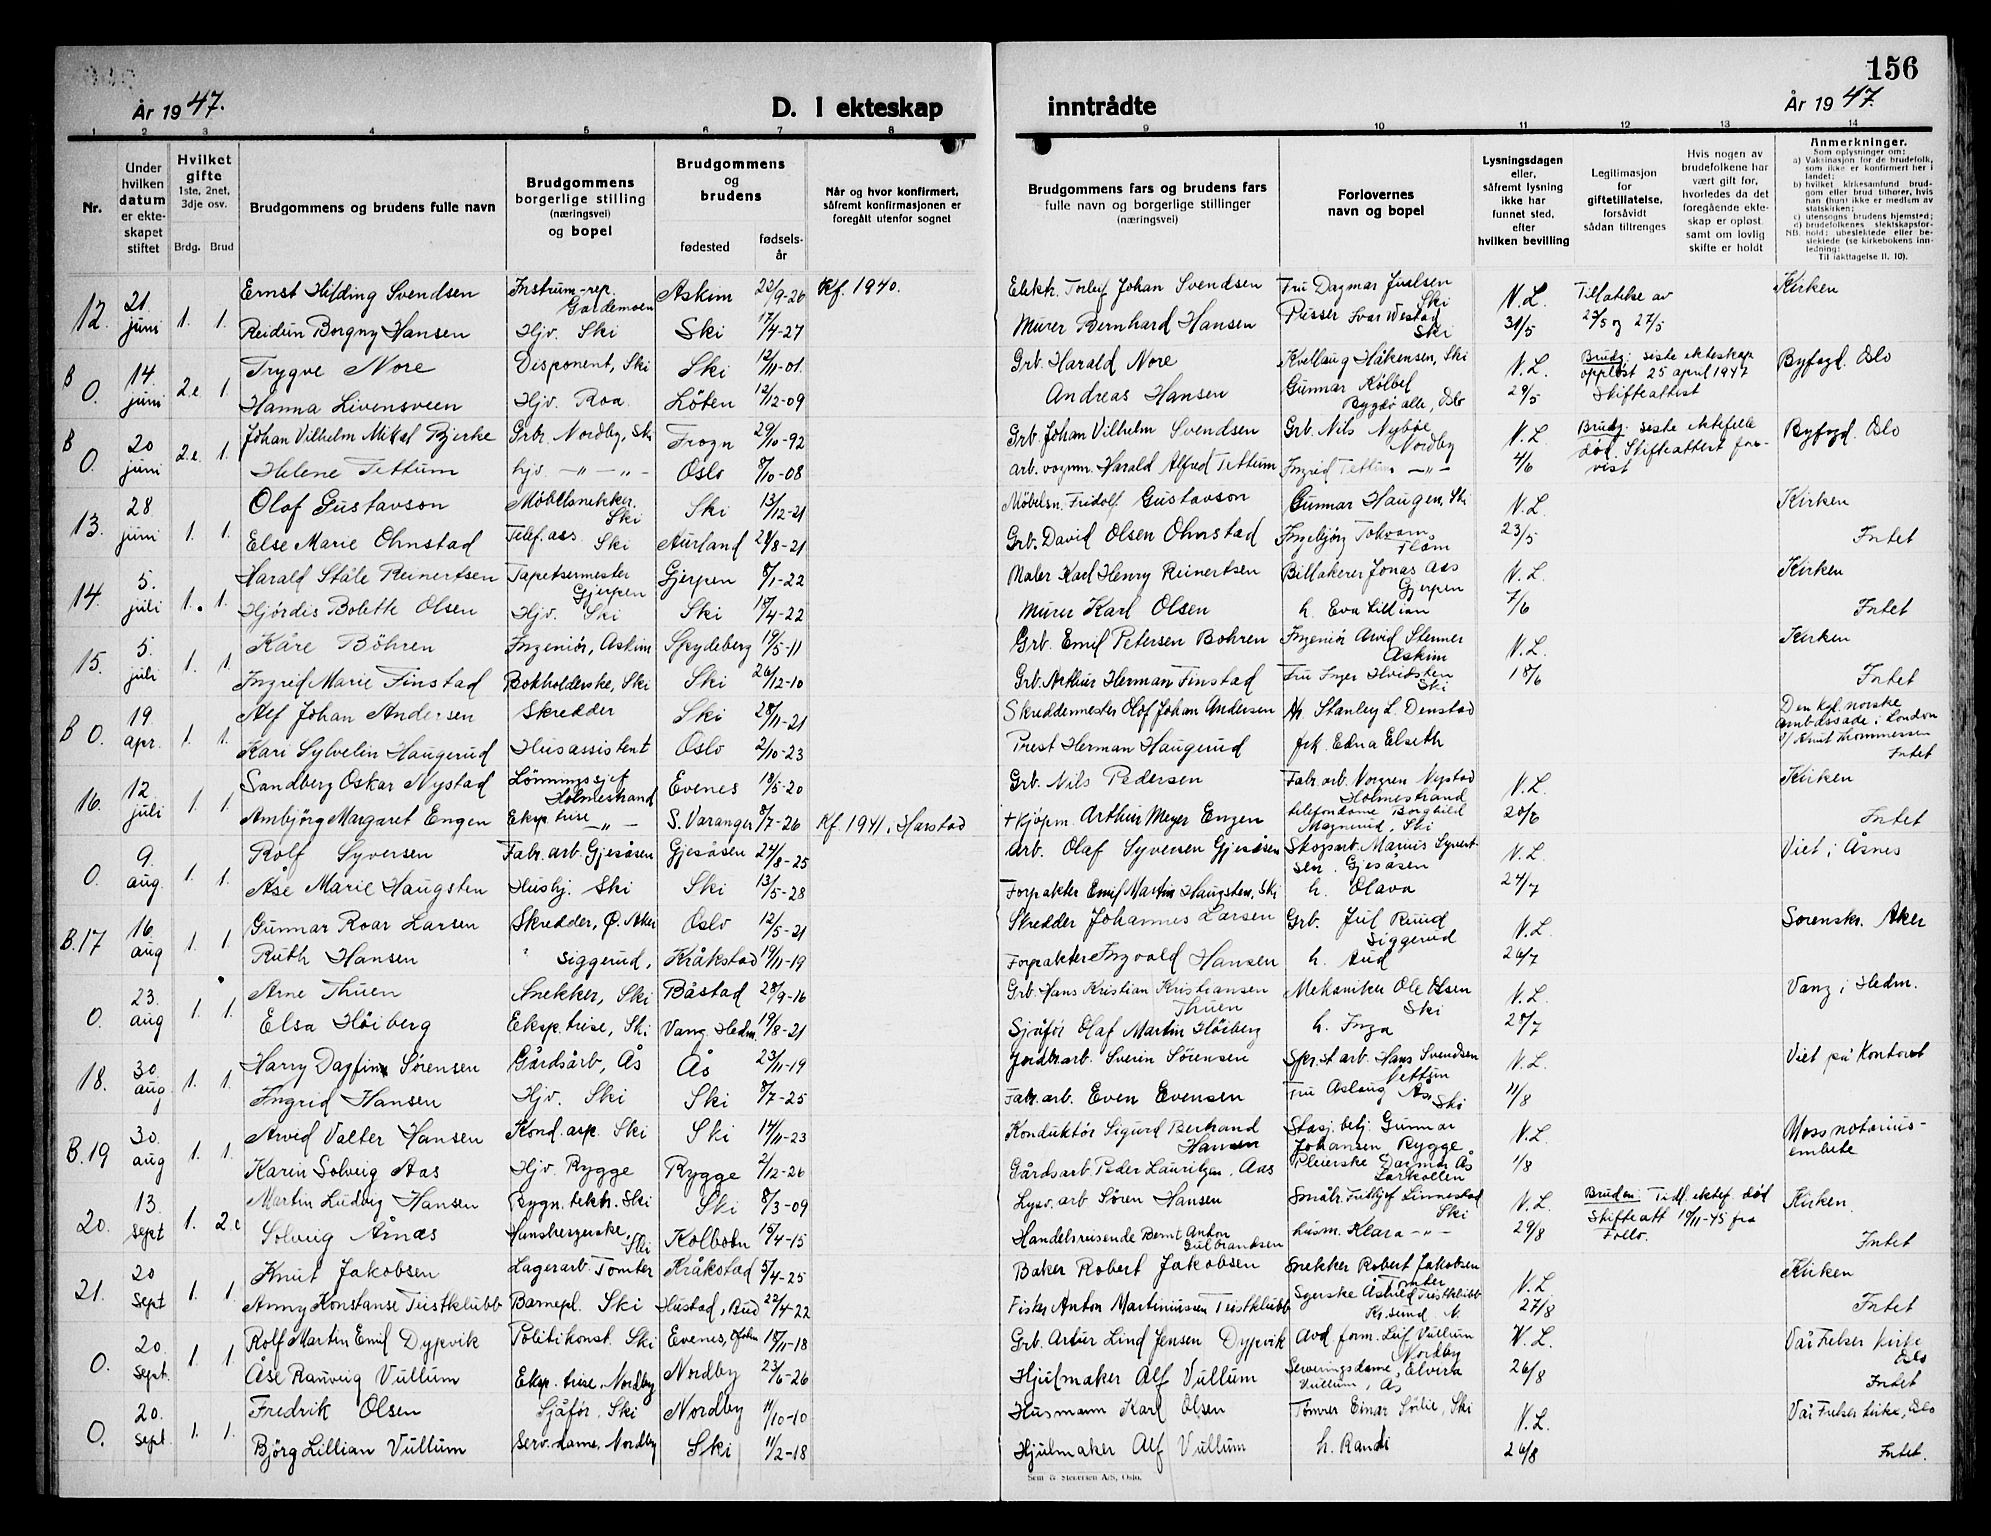 156
År 1947.
D. I ekteskap inntrådte
År 1947.
1 2 3 4 5 6 7 8 9 10 11 12 13 14
Nr.
Under hvilken datum er ekteskapet stiftet
Hvilket gifte 1ste, 2net, 3dje osv.
Brdg. Brud
Brudgommens og brudens fulle navn
Brudgommens borgerlige stilling (næringsvei) og bopel
Brudgommens og brudens
fødested
fødselsår
Når og hvor konfirmert, såfremt konfirmasjonen er foregått utenfor sognet
Brudgommens fars og brudens fars fulle navn og borgerlige stillinger (næringsvei)
Forlovernes navn og bopel
Lysningsdagen eller, såfremt lysning ikke har funnet sted, efter hvilken bevilling
Legitimasjon for giftetillatelse, forsåvidt sådan tiltrenges
Hvis nogen av brudefolkene har vært gift før, hvorledes da det foregående ekteskap er opløst samt om lovlig skifte er holdt
Anmerkninger.
Som oplysninger om:
a) Vaksinasjon for de brudefolk, som ikke er konfirmert her i landet;
b) hvilket kirkesamfund brudgom eller brud tilhører, hvis han (hun) ikke er medlem av statskirken;
c) utensogns brudens hjemsted;
d) brudefolkenes slektskapsforhold; ubeslektede eller beslektede (se kirkebokens innledning; Til iakttagelse II. 10).
NB.
12. 21. juni 1. 1. Ernst Hilding Svendsen Instrum-rep. Gardemoen Askim 22/9-26 Kf. 1940. Elektr. Torleif Johan Svendsen Fru Dagmar Juelsen Ski N.L. 31/5 Tillatelse av 23/5 og 27/5 Kirken
Reidun Borgny Hansen Hjv. Ski Ski 17/4-27 Murer Bernhard Hansen Ivar Westad Ski
B 0. 14. juni 2.e. 1. Trygve Nore Disponent, Ski Ski 12/11-01. Grb. Harald Nore Kvellaug Håkensen, Ski N.L. 29/5 Brudg. siste ekteskap oppløst 25 april 1947 Skifteattest Byfogd. Oslo
Hanna Livensveen Hjv. Roa Löten 12/12-09 Andreas Hansen Gunnar Kölbel Bygdö alle, Oslo
B 0. 20 juni 2.e. 1. Johan Vilhelm Mikal Bjerke Grbr. Nordby, Ski Frogn 29/10-92 Grb. Johan Vilhelm Svendsen Grb. Nils Nyböe Nordby N.L. 4/6 Brudg. siste ektefelle död. Skifteattest forevist Byfogd. Oslo
Helene Tettum hjv. —„— „— Oslo 8/10-08 arb. vognm. Harald Alfred Tettum Ingrid Tettum —„—
13. 28 juni 1. 1. Olaf Gustavson Möbelsnekker. Ski Ski 13/12-21 Möbelsn. Fridolf Gustavson Gunnar Haugen, Ski N.L. 23/5 Kirken
Else Marie Ohnstad Telef. ass. Ski Aurland 29/8-21 Grb. David Olsen Ohnstad Ingebjörg Tokvam Flåm Intet
14. 5. juli 1. 1. Harald Ståle Reinertsen Tapetsermester Gjerpen Gjerpen 8/1-22 Maler Karl Henry Reinertsen Billakerer Jonas Aas Gjerpen N.L. 7/6 Kirken
Hjördis Bolette Olsen Hjv. Ski Ski 18/4-22 Murer Karl Olsen h. Eva Lillian Intet
15. 5. juli 1. 1. Kåre Böhren Ingeniör, Askim Spydeberg 19/5-11 Grb. Emil Petersen Bohren Ingeniör Arvid Stenner Askim N.L. 18/6 Kirken
Ingrid Marie Finstad Bokholderske, Ski Ski 26/12-10 Grb. Arthur Herman Finstad Fru Inger Hvidsten Ski Intet
B 0. 19 apr. 1. 1. Alf Johan Andersen Skredder Ski 28/11-21 Skreddermester Olof Johan Andersen Hr. Stanley L. Denstad Den kgl. norske ambassade i London v/ Knut Thommessen
Kari Sylvelin Haugerud Husassistent Oslo 2/10-23 Prest Herman Haugerud frk. Edna Elseth Intet
16. 12. juli 1. 1. Sandberg Oskar Nystad Lönningssjef Holmestrand Evenes 18/5-20 Grb. Nils Pedersen Fabr. arb. Norgren Nystad Holmestrand N.L. 20/6 Kirken
Ambjörg Margaret Engen Eksp. trise —„— S. Varanger 8/7-26 Kf. 1941, Harstad + Kjöpm. Arthur Meyer Engen telefondame Borghild Magnerud, Ski Intet
0. 9. aug. 1. 1. Rolf Syversen Fabr. arb. Gjesåsen Gjesåsen 24/8-25 arb. Olaf Syversen Gjesåsen Skogsarb. Marius Syvertsen, Gjesåsen N.L. 24/7 Viet i Åsnes
Åse Marie Haugsten Hushj. Ski Ski 13/5-28 Forpakter Emil Martin Haugsten, Ski h. Olava
B. 17 16 aug 1. 1 Gunnar Roar Larsen Skredder, Ö. Aker Oslo 12/5-21 Skredder Johannes Larsen Grb. Jul Ruud Siggerud N.L. 26/7 Sorenskr. Aker
Ruth Hansen " Siggerud, Kråkstad 19/11-19 Forpakter Ingvald Hansen h. Aud
0. 23. aug 1. 1. Arne Thuen Snekker, Ski Båstad 28/9-16 Grb. Hans Kristian Kristiansen Thuen Mekaniker Ole Olsen Ski N.L. 28/7 Vang i Hedm.
Elsa Höiberg Eksp. trise, Ski Vang. Hedm. 19/8-21 Sjåför Olaf Martin Höiberg h. Inga
18. 30. aug. 1. 1. Harry Dagfinn Sörensen Gårdsarb, Ås Ås 23/11-19 Jordbrarb. Sverin Sörensen Spr.st arb. Hans Svendsen Vettum N.L. 11/8 Viet på Kontoret
Ingrid Hansen Hjv. Ski Ski 8/7-25 Fabr. arb. Even Evensen Fru Aslaug Ås, Ski
B. 19 30. aug 1. 1. Arvid Valter Hansen Kond. asp. Ski Ski 14/11-23 Konduktör Sigurd Bertrand Hansen Stasj. betj. Gunnar Johansen Rygge N.L. 1/8 Moss notariusembete
Karin Solveig Aas Hjv. Rygge Rygge 2/12-26 Gårdsarb. Peder Lauritzen Aas Pleierske Dagmar Ås Larkollen
20. 13. sept 1. 2 e Martin Ludvig Hansen Bygn. tekn. Ski Ski 8/3-09 Lysv. arb Sören Hansen Småbr. Linnestad Ski N.L. 29/8 Bruden. Tidl. ektef. död Skifteatt 10/11-45 fra Follo. Kirken.
Solveig Årnæs Ski Kolbotn 15/4-15 Handelsreisende Bernt Anton Gulbrandsen husm. Klara —„— Intet
21. 20 sept 1. 1. Knut Jakobsen Lagerarb. Tomter Kråkstad 5/4-25 Baker Robert Jakobsen Snekker Robert Jakobsen Tomter N.L. 27/8 Kirken
Anny Konstanse Tustklubb Barnepl. Ski Hustad, Bud 22/4-22 Fisker Anton Martinussen Tustklubb Syerske Astrid Tustklubb Kr. sund N. Intet
0. 20. sept. 1. 1. Rolf Martin Emil Dypvik Politikonst. Ski Evenes, Ofoten 18/11-18 Grb. Artur Lind Jensen Dypvik Avd. form. Leif Vullum Nordby N.L. 26/8 Vår Frelser kirke Oslo
Åse Rauveig Vullum Eksp. trise, Nordby Nordby 23/6-26 Hjulmaker Alf Vullum Serveringsdame, Elvira Vullum, Ås Intet
0. 20. sept. 1. 1. Fredrik Olsen Sjåför, Ski Nordby 11/10-10 Husmann Karl Olsen Tömrer Einar Sörlie, Ski N.L. 26/8 Vår Frelser kirke, Oslo
Björg Lillian Vullum Serv. dame, Nordby Ski 11/2-18 Hjulmaker Alf Vullum h. Randi Intet.
Sem & Stenersen A/S, Oslo.